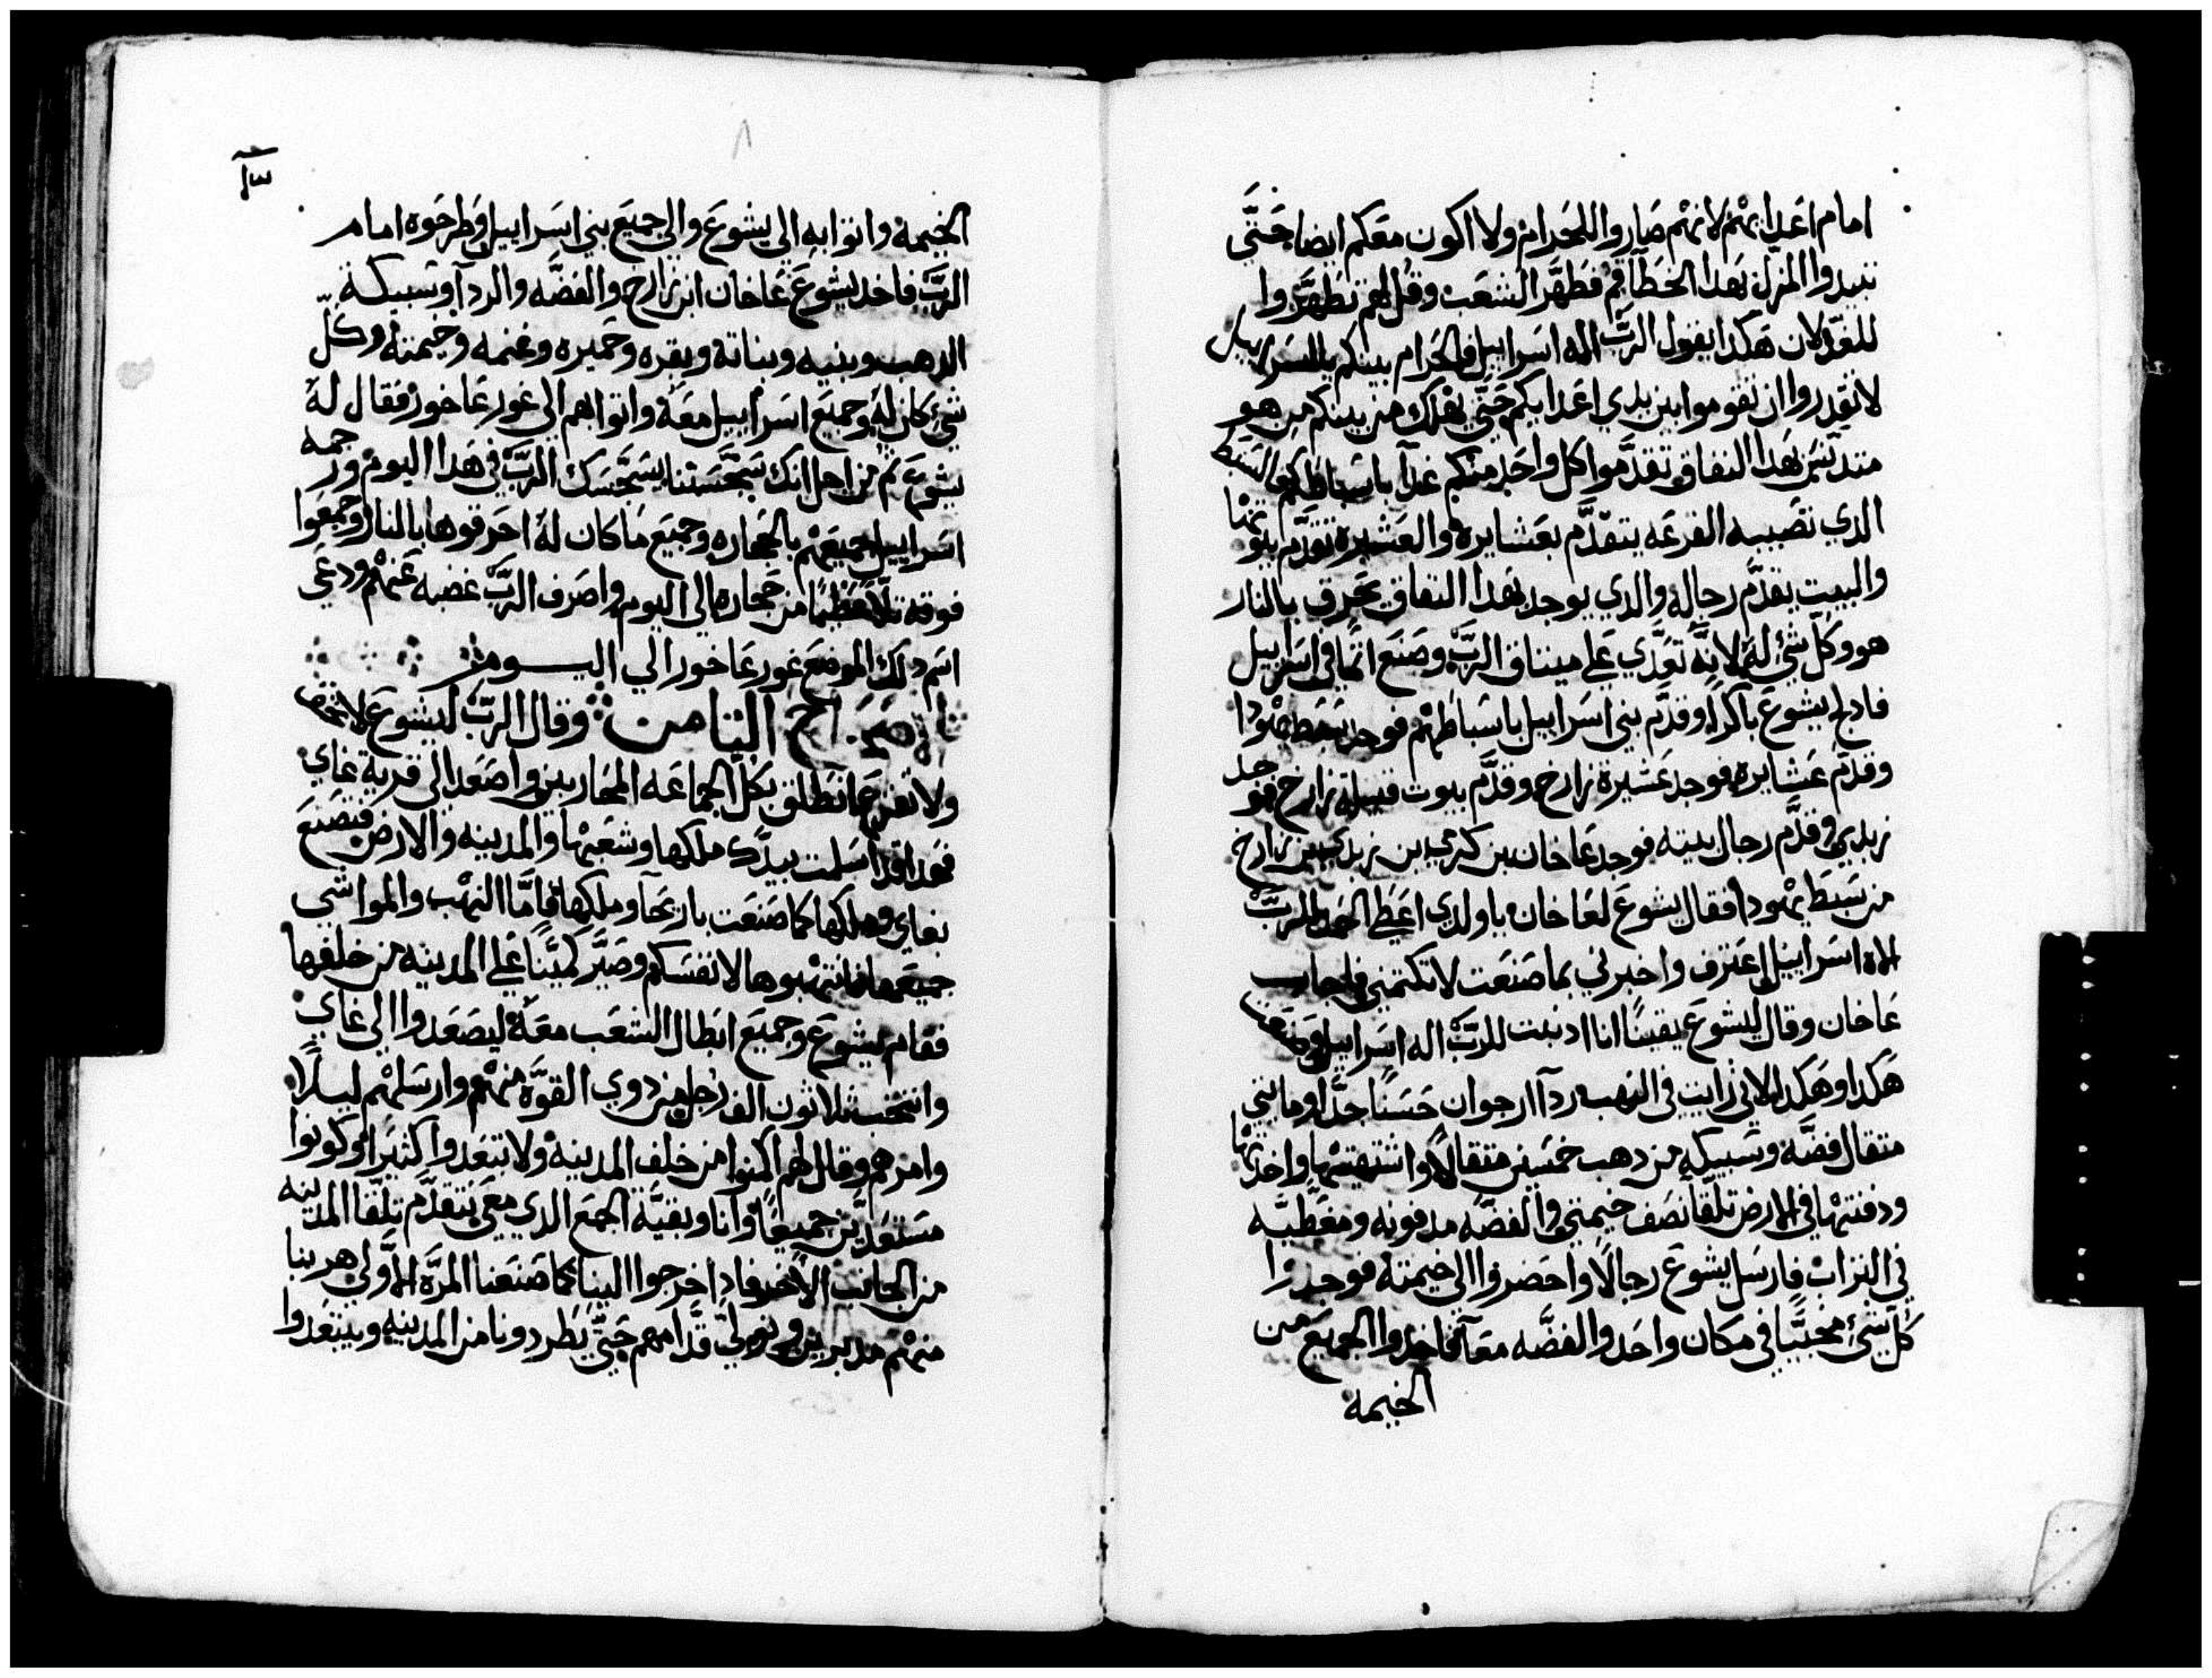 امام اعدايهم لانهم صاروا للحرام ولا اكون معكم ايضا حتي
تبيدوا المزل بهدا الخطا قم فطهر الشعب وقل لهم تطهروا
للغد لان هكدا يقول الرب اله اسراييل الحرام بينكم يااسراييل
لا تقدروا ان تقوموا بين يدي اعدايكم حتي يهلك من بينكم من هو
متدنس بهدا النفاق تقدموا كل واحد منكم غدا باسباطكم السبط
الدي تصيبه القرعه يتقدم بعشايره والعشيره تقدم بيوتها
والبيت يقدم رجاله والدي يوجد بهدا النفاق يحرق بالنار
هو وكل شي له لانه تعدي علي ميتاق الرب وصنع اتما في اسراييل
فادلج يشوع باكرا وقدم بني اسراييل باسباطهم فوجد سبط يهودا
وقدم عشايره فوجد عشيرة زارخ وقدم بيوت قبيلة زارخ فوجد
زبدي وقدم رجال بيته فوجد عاخان بن كرمي بن زبدي بن زارخ
من سبط يهودا فقال يشوع لعاخان ياولدي اعطي الحمد للرب
اله اسراييل اعترف واخبرني بما صنعت لا تكتمني فاجاب
عاخان وقال ليشوع يقينا انا ادنبت للرب اله اسراييل وصنعت
هكدا وهكدا لاني رايت في النهب ردا ارجوان حسنا جدا ومايتي
متقال فضه وسبيكه من دهب خمسين متقالا واشتهيتها واخدتها
ودفنتها في الارض تلقا نصف خيمتي والفضه مدفونه ومغطيه
في التراب فارسل يشوع رجالا واحضروا الي خيمته فوجدوا
كل شي مخبيا في مكان واحد والفضه معا فاخدوا الجميع من
الخيمه
٨
الخيمه واتوا به الي يشوع والي جميع بني اسراييل وطرحوه امام
الرب فاخد يشوع عاخان ابن زارخ والفضه والردا وسبيكة
الدهب وبنيه وبناته وبقره وحميره وغنمه وخيمته وكل
شي كان له وجميع اسراييل معه واتوا بهم الي غور عاخور فقال له
يشوع من اجل انك سجستنا يسجسك الرب في هدا اليوم ورجمه
اسراييل جميعهم بالحجاره وجميع ما كان له احرقوها بالنار وجمعوا
فوقه تلا عظيما من حجاره الي اليوم واصرف الرب غضبه عنهم ودعي
اسم دلك الموضع غور عاخور الي اليوم
الاصحاح التامن وقال الرب ليشوع لا تخف
ولا تفزع انطلق بكل الجماعه المحاربين واصعد الي قرية غاي
فهدا قد اسلمت بيدك ملكها وشعبها والمدينه والارض فتصنع
بغاي وملكها كما صنعت باريحا وملكها فاما النهب والمواشي
جميعها فانتهبوها لانفسكم وصير كمينا علي المدينه من خلفها
فقام يشوع وجميع ابطال الشعب معه ليصعدوا الي غاي
وانتخب تلاتون الف رجل من دوي القوه منهم وارسلهم ليلا
وامرهم وقال لهم اكمنوا من خلف المدينه ولا تبعدوا كتيرا وكونوا
مستعدين جميعا وانا وبقية الجمع الدي معي نتقدم تلقا المدينه
من الجانب الاخر فادا خرجوا الينا كما صنعنا المره الاولي هربنا
منهم مدبرين ونولي قدامهم حتي يطردونا من المدينه ويبتعدوا